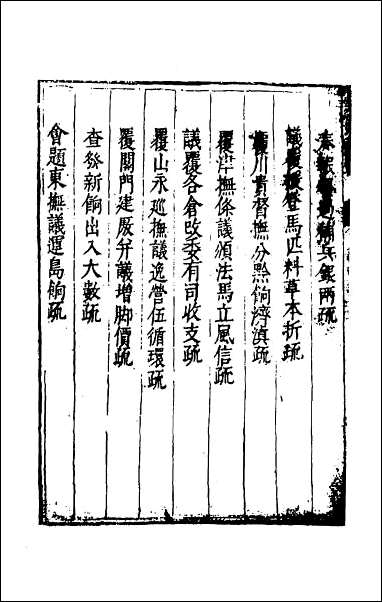 兵銀兩疏
議覆登馬匹料草本折疏
川貴督撫分黔餉濟滇疏
覆津撫條議頒法馬立風信疏
議覆各倉改委有司收支疏
覆山永巡撫議逃營伍循環疏
覆關門建廒并議增脚價疏
查發新餉出入大數疏
會題東撫議運島餉疏